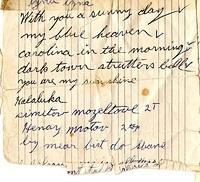 With you a sunny day ✓
my blue heaven ✓
carolina in the morning ✓
dark town strutters ball ✓
you are my sunshine
Halaluka
simetov mozeltove 2T
Henay motov
by mear but du shane